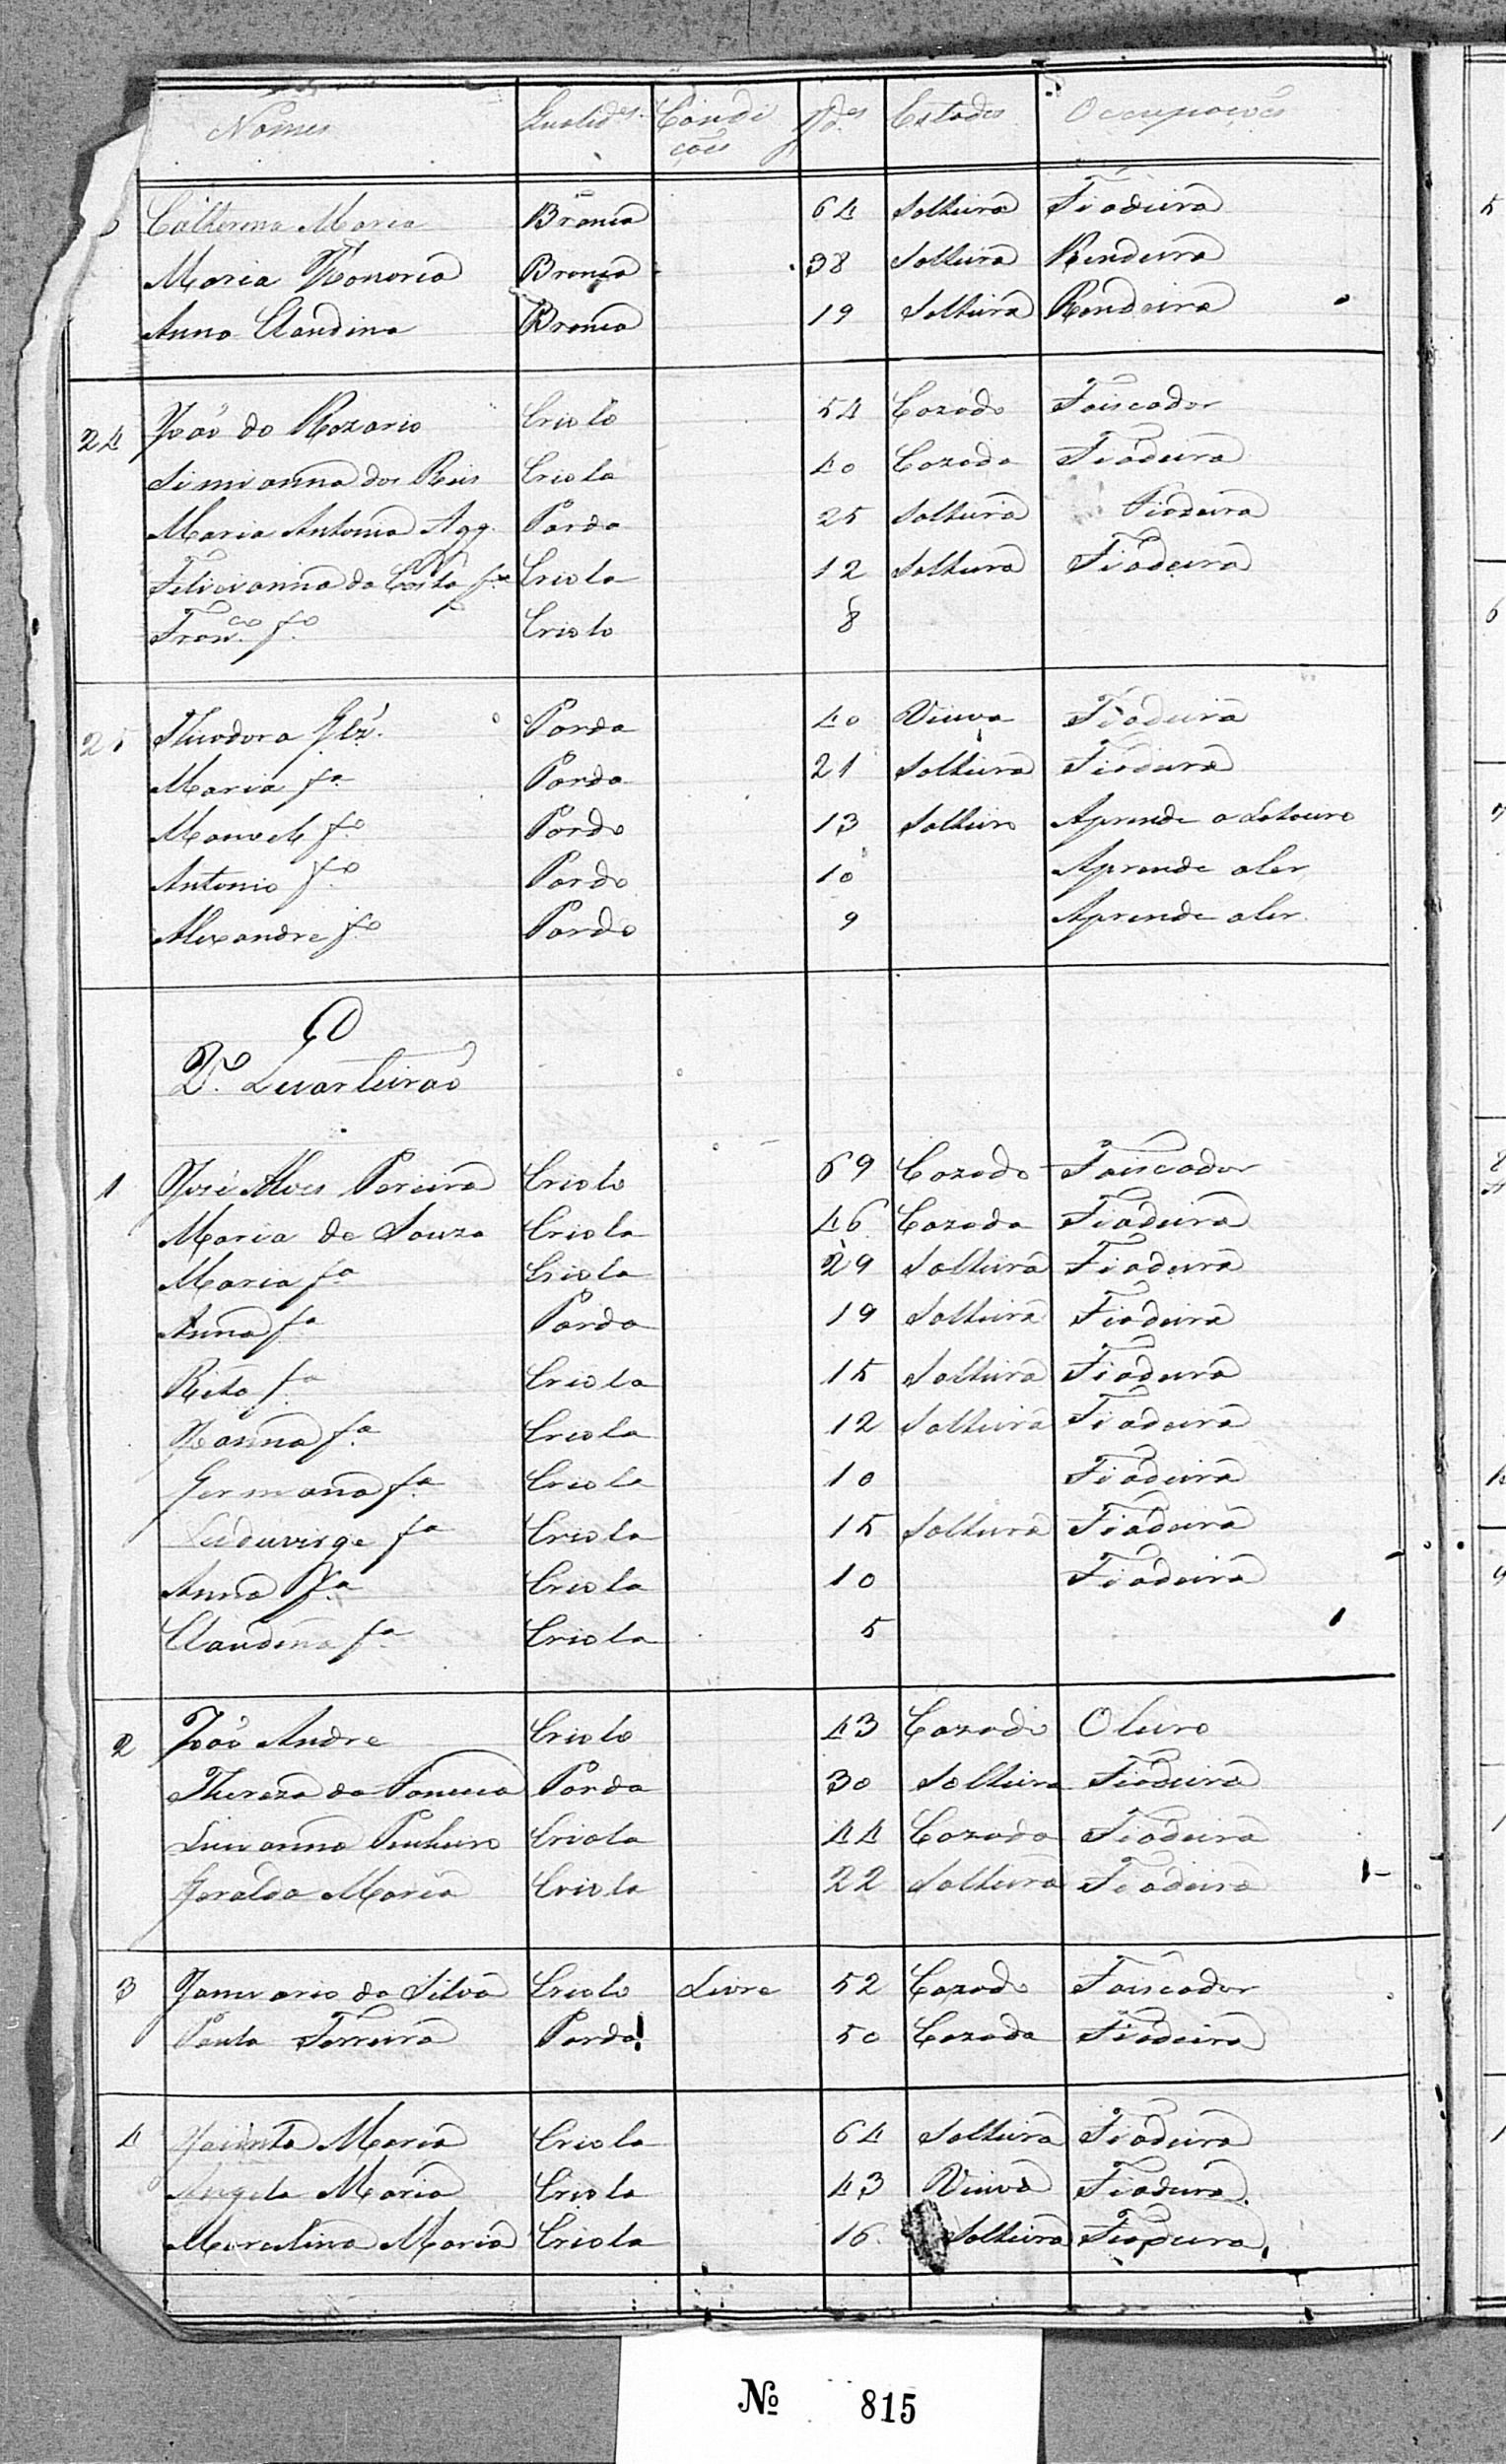 Nomes Qualid.es Condi Id.es Estados Occupaçoẽs
coẽs
Catherina Maria Branca 64 Solteira Fiadeira
Maria Honoria Branca 38 Solteira Rendeira
Anna Claudina Branca 19 Solteira Rendeira
24 João do Rozario Criolo 54 Cazado Faiscador
Simianna dos Reis Criola 40 Cazada Fiadeira
Maria Antonia Agg. Parda 25 Solteira Fiadeira
Felicianna da Costa f.a Criola 12 Solteira Fiadeira
Fran.co f.o Criolo 8
25 Theodora Glz.' Parda 40 Viuva Fiadeira
Maria f.a Parda 21 Solteira Fiadeira
Manoel f.o Pardo 13 Solteiro Aprende a Latoeiro
Antonio f.o Pardo 10 Aprende aler
Alexandre f.o Pardo 9 Aprende aler
2.o Quarteirão
1 José Alves Pereira Criolo 69 Cazado Faiscador
Maria de Souza Criola 46 Cazada Fiadeira
Maria f.a Criola 29 Solteira Fiadeira
Anna f.a Parda 19 Solteira Fiadeira
Rita f.a Criola 15 Solteira Fiadeira
Joanna f.a Criola 12 Solteira Fiadeira
Germana f.a Criola 10 Fiadeira
Leduvirge f.a Criola 15 Solteira Fiadeira
Anna f.a Criola 10 Fiadeira
Claudina f.a Criola 5
2 João Andre Criolo 43 Cazado Oleiro
Thereza da Fonseca Parda 30 Solteira Fiadeira
Pinheiro Criola 44 Cazada Fiadeira
Geralda Maria Criola 22 Solteira Fiadeira
3 Januario da Silva Criolo Livre 52 Cazado Faiscador
Paula Ferreira Parda 50 Cazada Fiadeira
4 Jacinta Maria Criola 64 Solteira Fiadeira
Angela Maria Criola 43 Viuva Fiadeira
Marcelina Maria Criola 16 Solteira Fiadeira
No 815